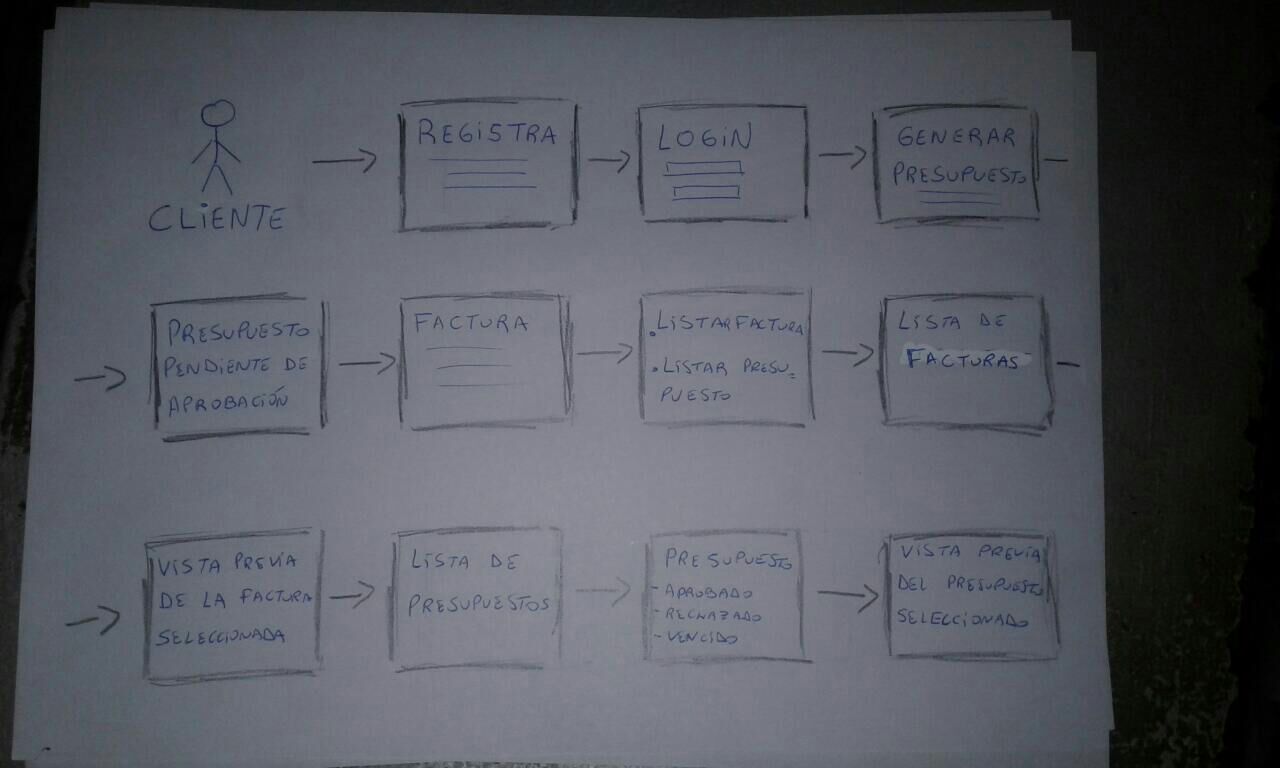 CLIENTE
REGISTRA
LOGIN
GENERAR
PRESUPUESTO
PRESUPUESTO
PENDIENTE DE
APROBACIÓN
FACTURA
.LISTAR FACTURA
.LISTAR PRESU-
PUESTO
LISTA DE
FACTURAS
VISTA PREVIA
DE LA FACTURA
SELECCIONADA
LISTA DE
PRESUPUESTOS
PRESUPUESTO
-APROBADO
-RECHAZADO
-VENCIDO
VISTA PREVIA
DEL PRESUPUESTO
SELECCIONADO